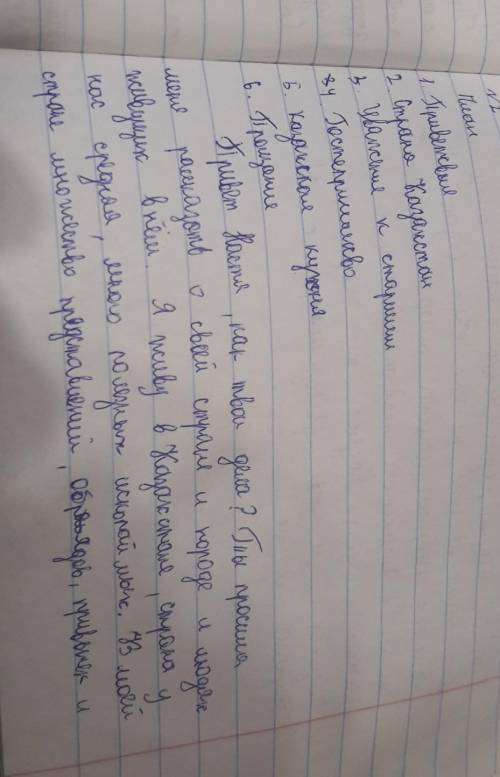 №2
План
1. Приветсвие
2. Страна Казахстан
3 Уважение к старшим
4 Гостеприимсво
5. Казахская кухня
6. Прощание
Привет Настя, как твои дела? Ты просила
меня рассказать о своей стране и городе и людях
живущих в нём. Я живу в Казахстане, страна у
нас средняя, много полезных ископаймых. Из моей
стране множество представлений, обрядов, привычек и